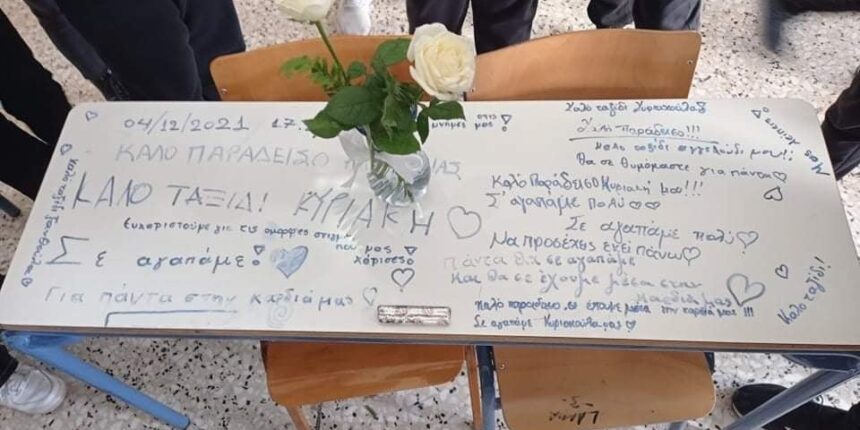 04/12/2021 17.
ΚΑΛΟ ΠΑΡΑΔΕΙΣΟ
ΚΑΛΟ ΤΑΞΙΔΙ ΚΥΡΙΑΚΗ
Ευχαριστούμε για τις όμορφες στιγμ
που μας
χάρισες
Σε αγαπάμε!
Για πάντα στην καρδιά μας
στις
μνήμες μας!
Καλό ταξίδι
Καλό Παράδεισο!!!
Καλο ταξίδι αγγελούδι μου!!
Θα σε θυμόμαστε για πάντα
Μας λείπεις!
Καλό Παράδεισο Κυριακή μου!!!
Σ' αγαπάμε πολύ
Σε αγαπάμε πολύ
Να προσέχεις εκεί πάνω
Πάντα θα σε αγαπάμε
και θα σε έχουμε μέσα στην
καρδιά μας
Καλό παράδεισο σε έχουμε μέσα την καρδιά μας!!!
Σε αγαπάμε
Καλό ταξίδι!
Καλό ταξίδι